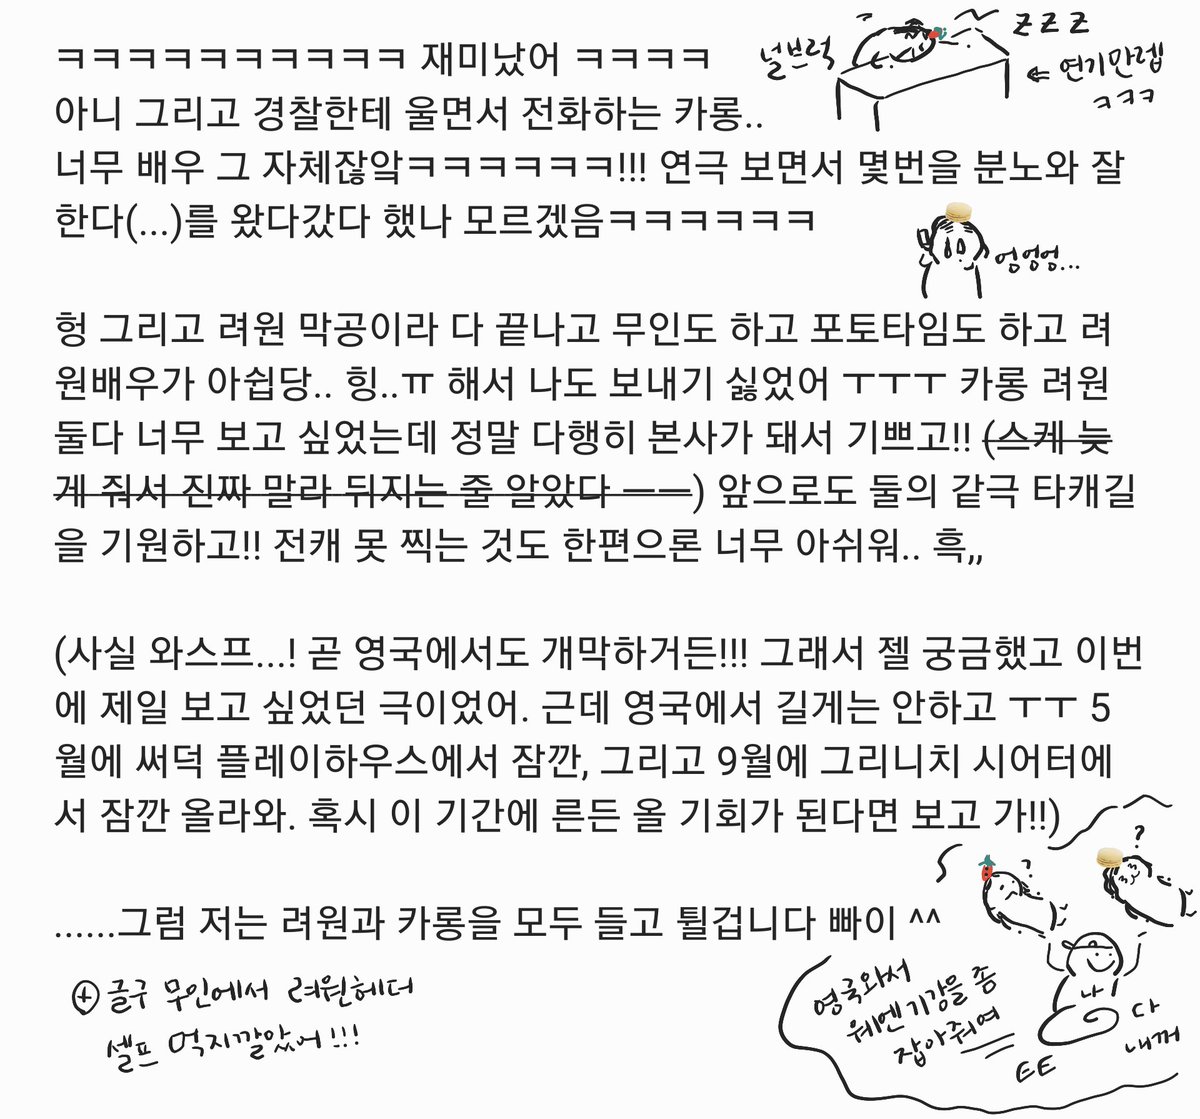 ㅋㅋㅋㅋㅋㅋㅋㅋㅋㅋ 재미났어 ㅋㅋㅋㅋ
널브럭
zzz
⇐ 연기만렙
ㅋㅋㅋ
아니 그리고 경찰한테 울면서 전화하는 카롱..
너무 배우 그 자체잖앜ㅋㅋㅋㅋㅋㅋ!!! 연극 보면서 몇번을 분노와 잘
한다(...)를 왔다갔다 했나 모르겠음ㅋㅋㅋㅋㅋㅋ
엉엉엉...
헝 그리고 려원 막공이라 다 끝나고 무인도 하고 포토타임도 하고 려
원배우가 아쉽당.. 힝..ㅠ 해서 나도 보내기 싫었어 ㅜㅜㅜ 카롱 려원
둘다 너무 보고 싶었는데 정말 다행히 본사가 돼서 기쁘고!! (스케 늦
게 줘서 진짜 말라 뒤지는 줄 알았다 ㅡㅡ) 앞으로도 둘의 같극 타캐길
을 기원하고!! 전캐 못 찍는 것도 한편으론 너무 아쉬워.. 흑,,
(사실 와스프...! 곧 영국에서도 개막하거든!!! 그래서 젤 궁금했고 이번
에 제일 보고 싶었던 극이었어. 근데 영국에서 길게는 안하고 ㅜㅜ 5
월에 써덕 플레이하우스에서 잠깐, 그리고 9월에 그리니치 시어터에
서 잠깐 올라와. 혹시 이 기간에 른든 올 기회가 된다면 보고 가!!)
......그럼 저는 려원과 카롱을 모두 들고 튈겁니다 빠이 ^^
⊕ 글구 무인에서 려원헤더
셀프 먹지깔았어!!!
?
?
영국와서
웨엔기강을 좀
잡아줘여
나
다
내꺼
ㅌㅌ